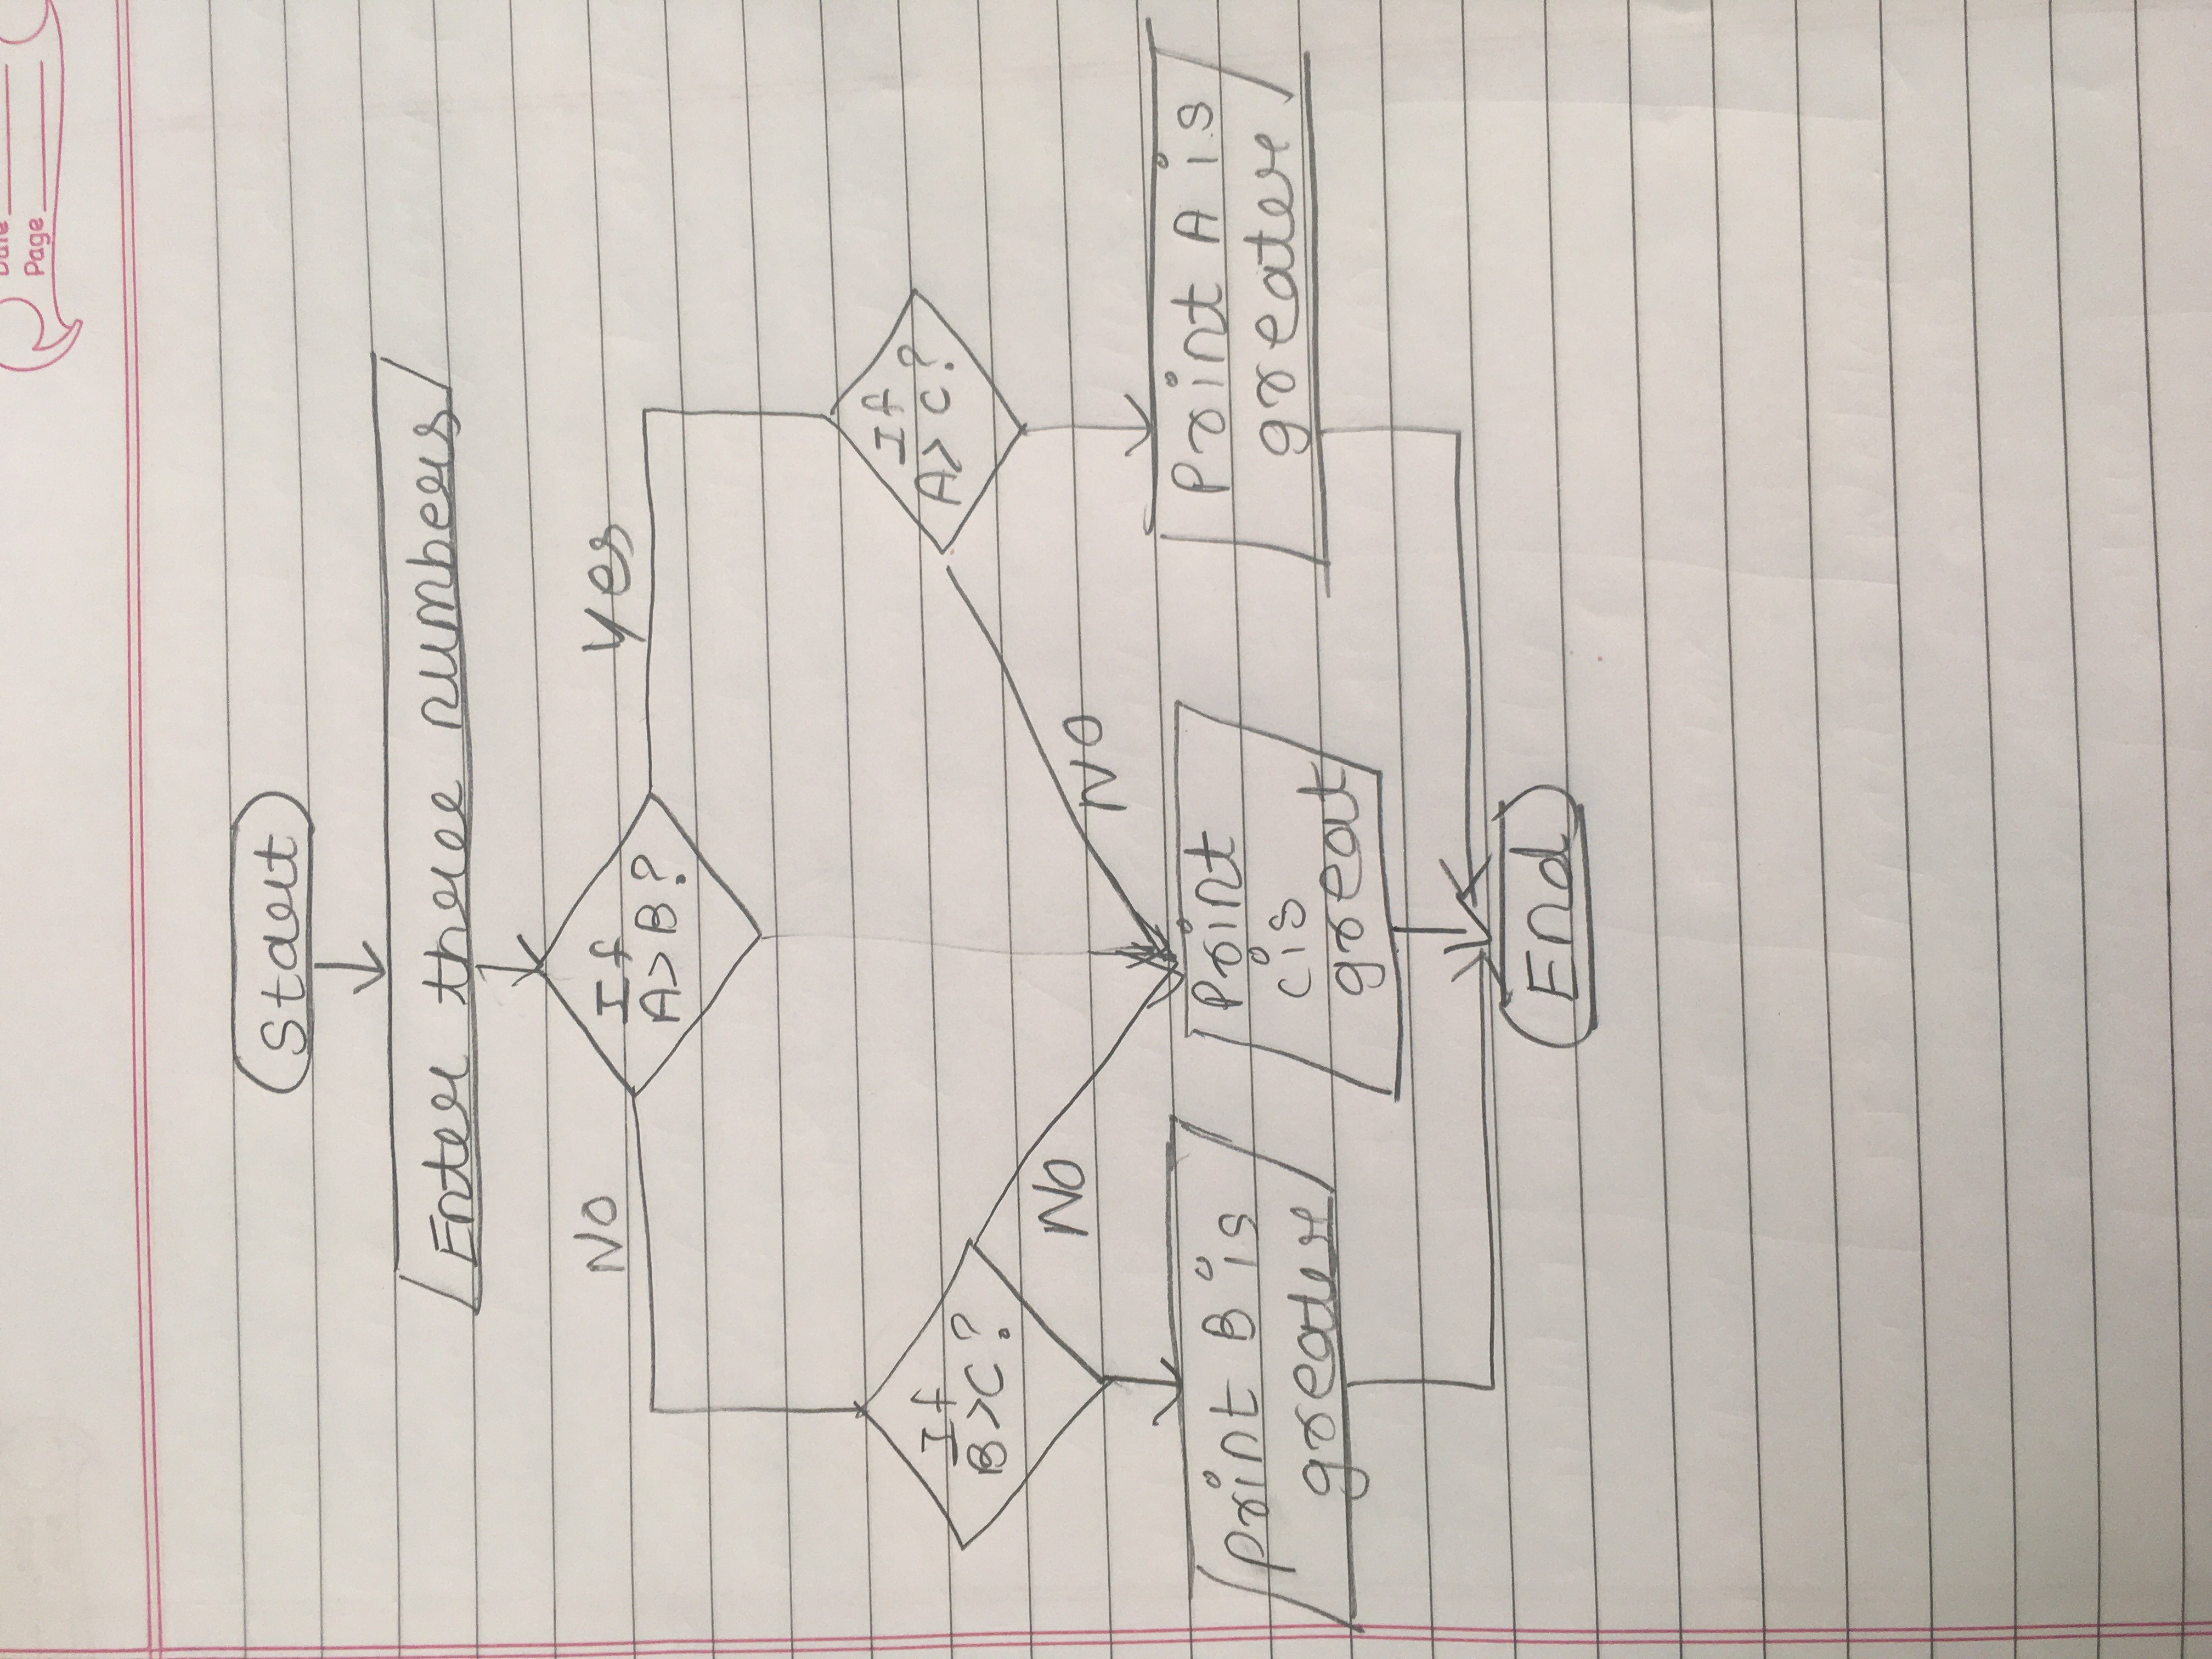 Date
Page
Start
Enter three numbers
No
Yes
If
A>B?
If
A>C?
If
B>C?
No
NO
print B is
greater
Print
c is
great
Print A is
greater
End